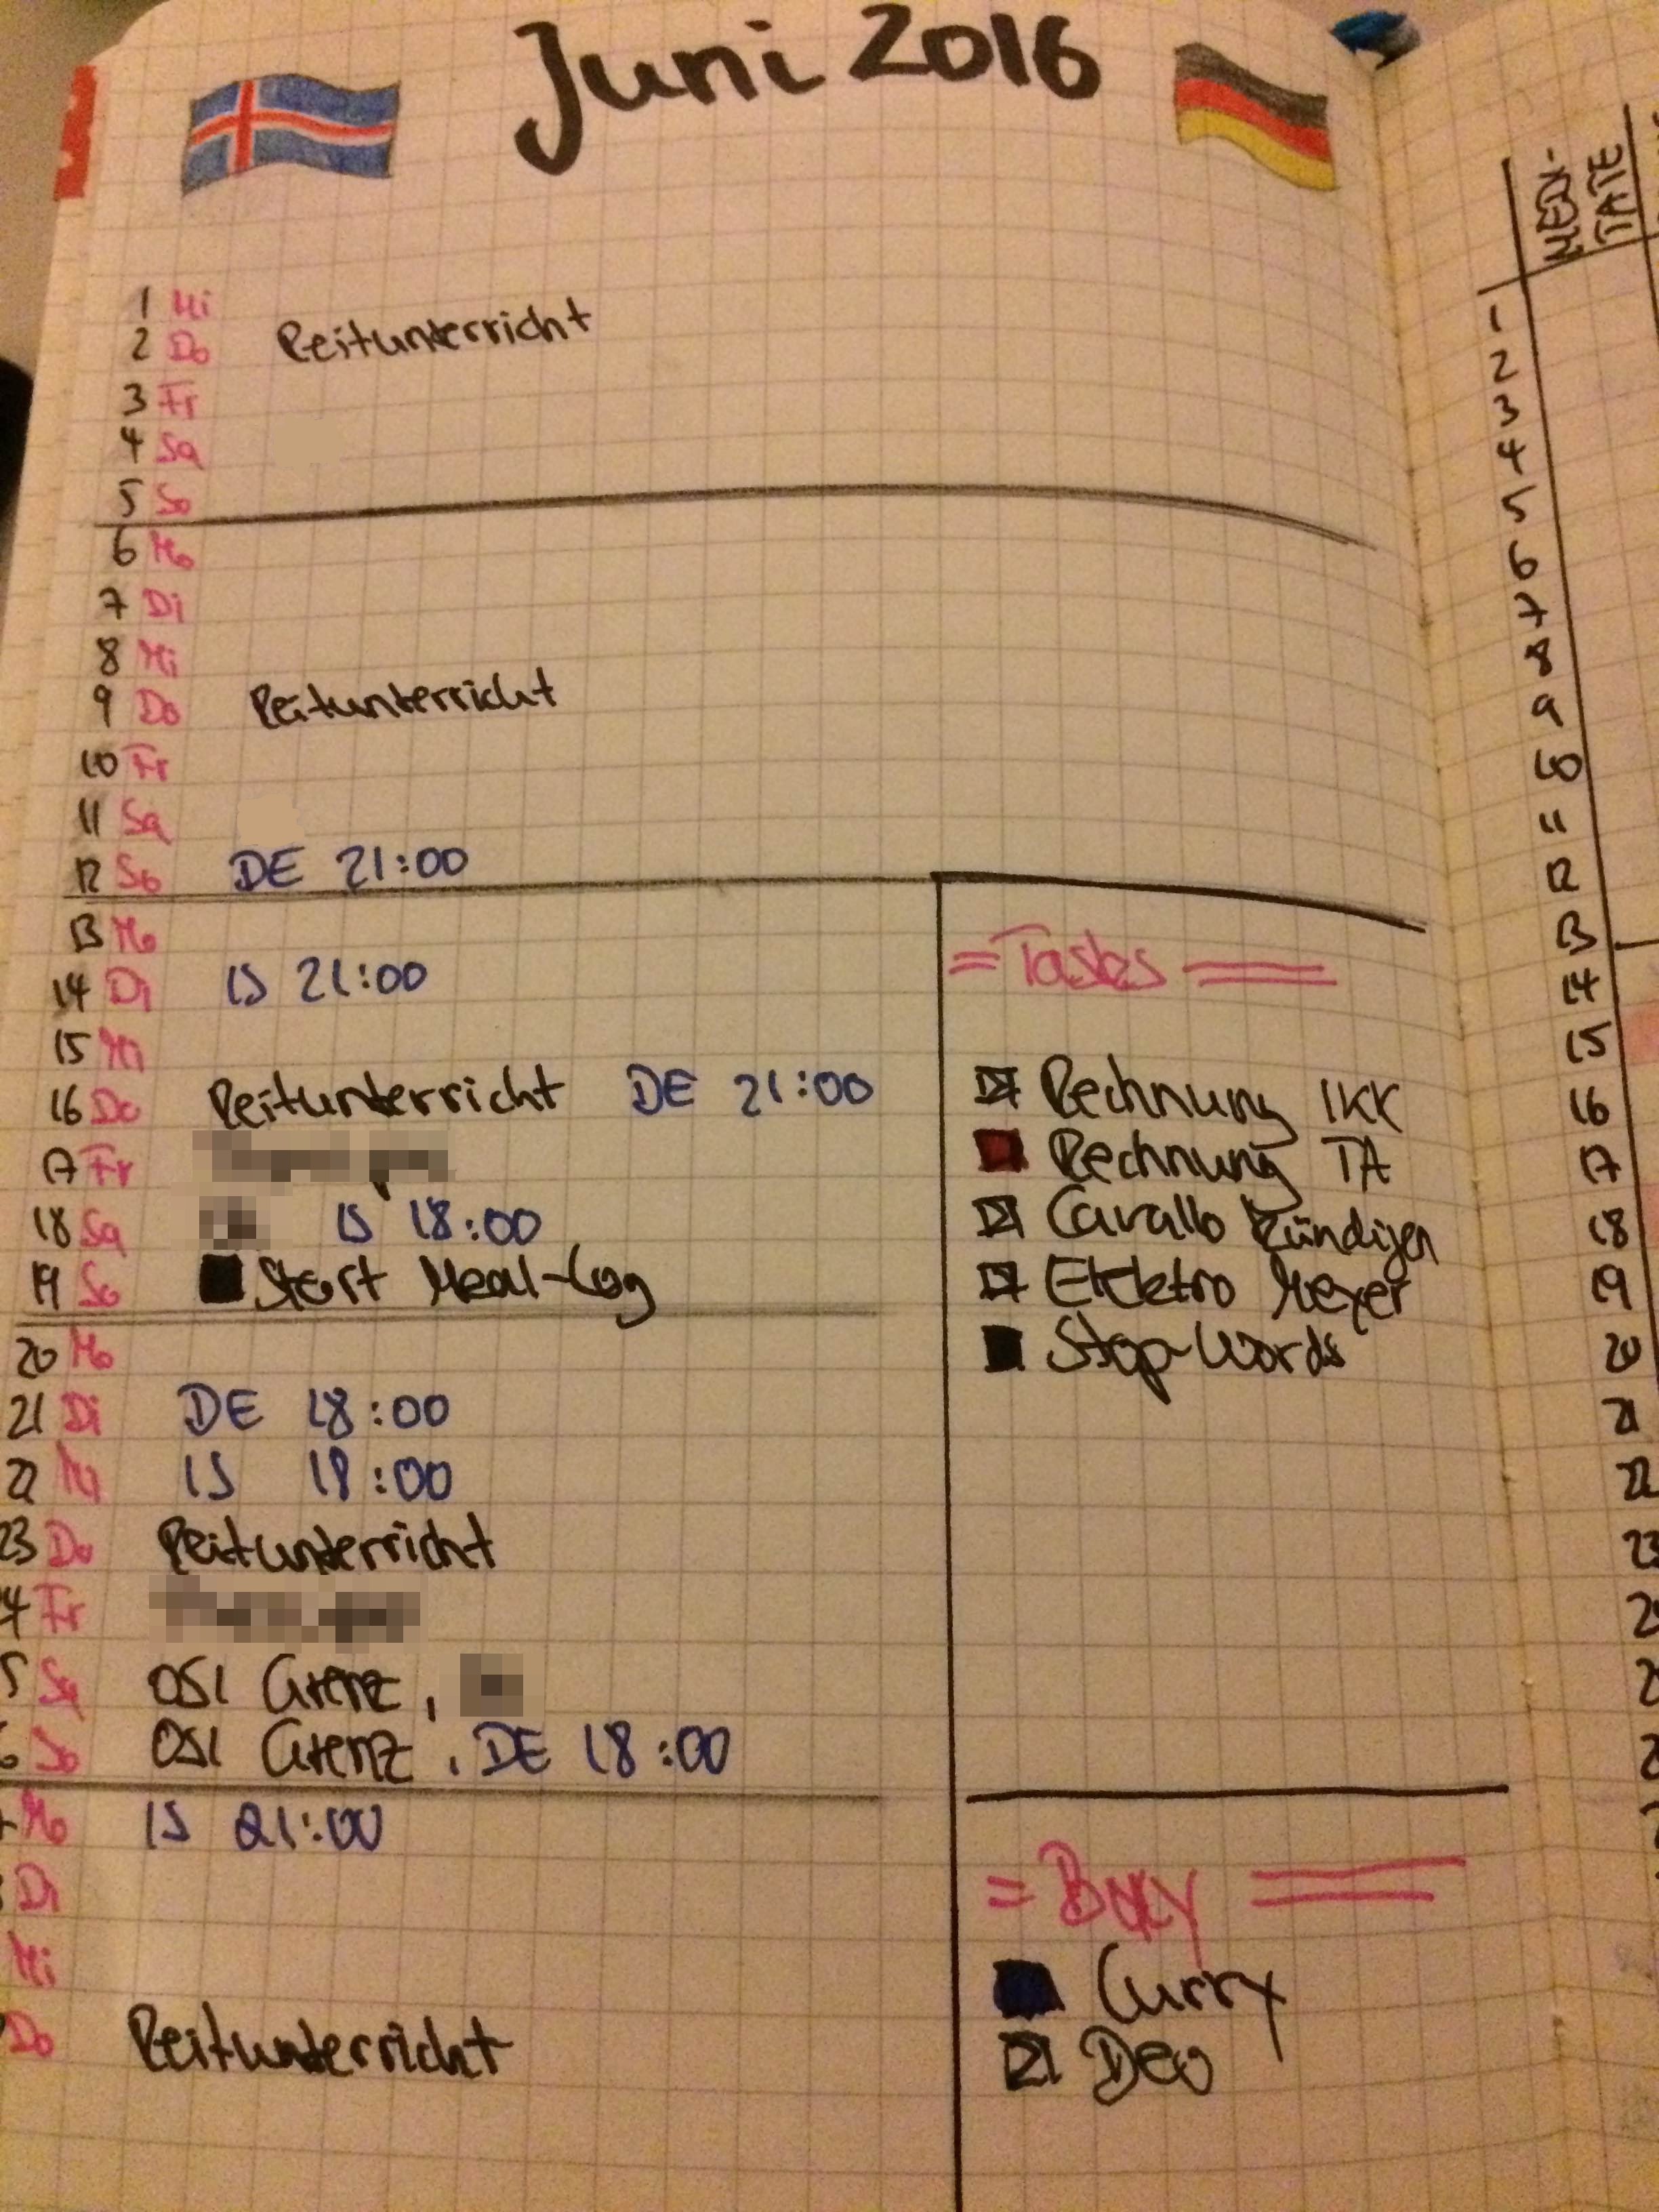 Juni 2016
1 Mi
2 Do Reitunterricht
3 Fr
4 Sa
5 So
6 Mo
7 Di
8 Mi
9 Do Reitunterricht
10 Fr
11 Sa
12 So DE 21:00
13 Mo
14 Di IS 21:00
15 Mi
16 Do Reitunterricht DE 21:00
17 Fr
18 Sa IS 18:00
19 So Start Meal-Log
20 Mo
21 Di DE 18:00
22 Mi IS 18:00
23 Do Reitunterricht
4 Fr
5 Sa OSI Grenz,
6 So OSI Grenz, DE 18:00
Mo IS 21:00
Di
Mi
Do Reitunterricht
= Tasks =
Rechnung IKK
Rechnung TA
Cavallo kündigen
Elektro Meyer
Stop-Words
= Buy =
Curry
Deo
MEDI-
TATE
1
2
3
4
5
6
7
8
9
10
11
12
13
14
15
16
17
18
19
20
21
22
23
2
2
2